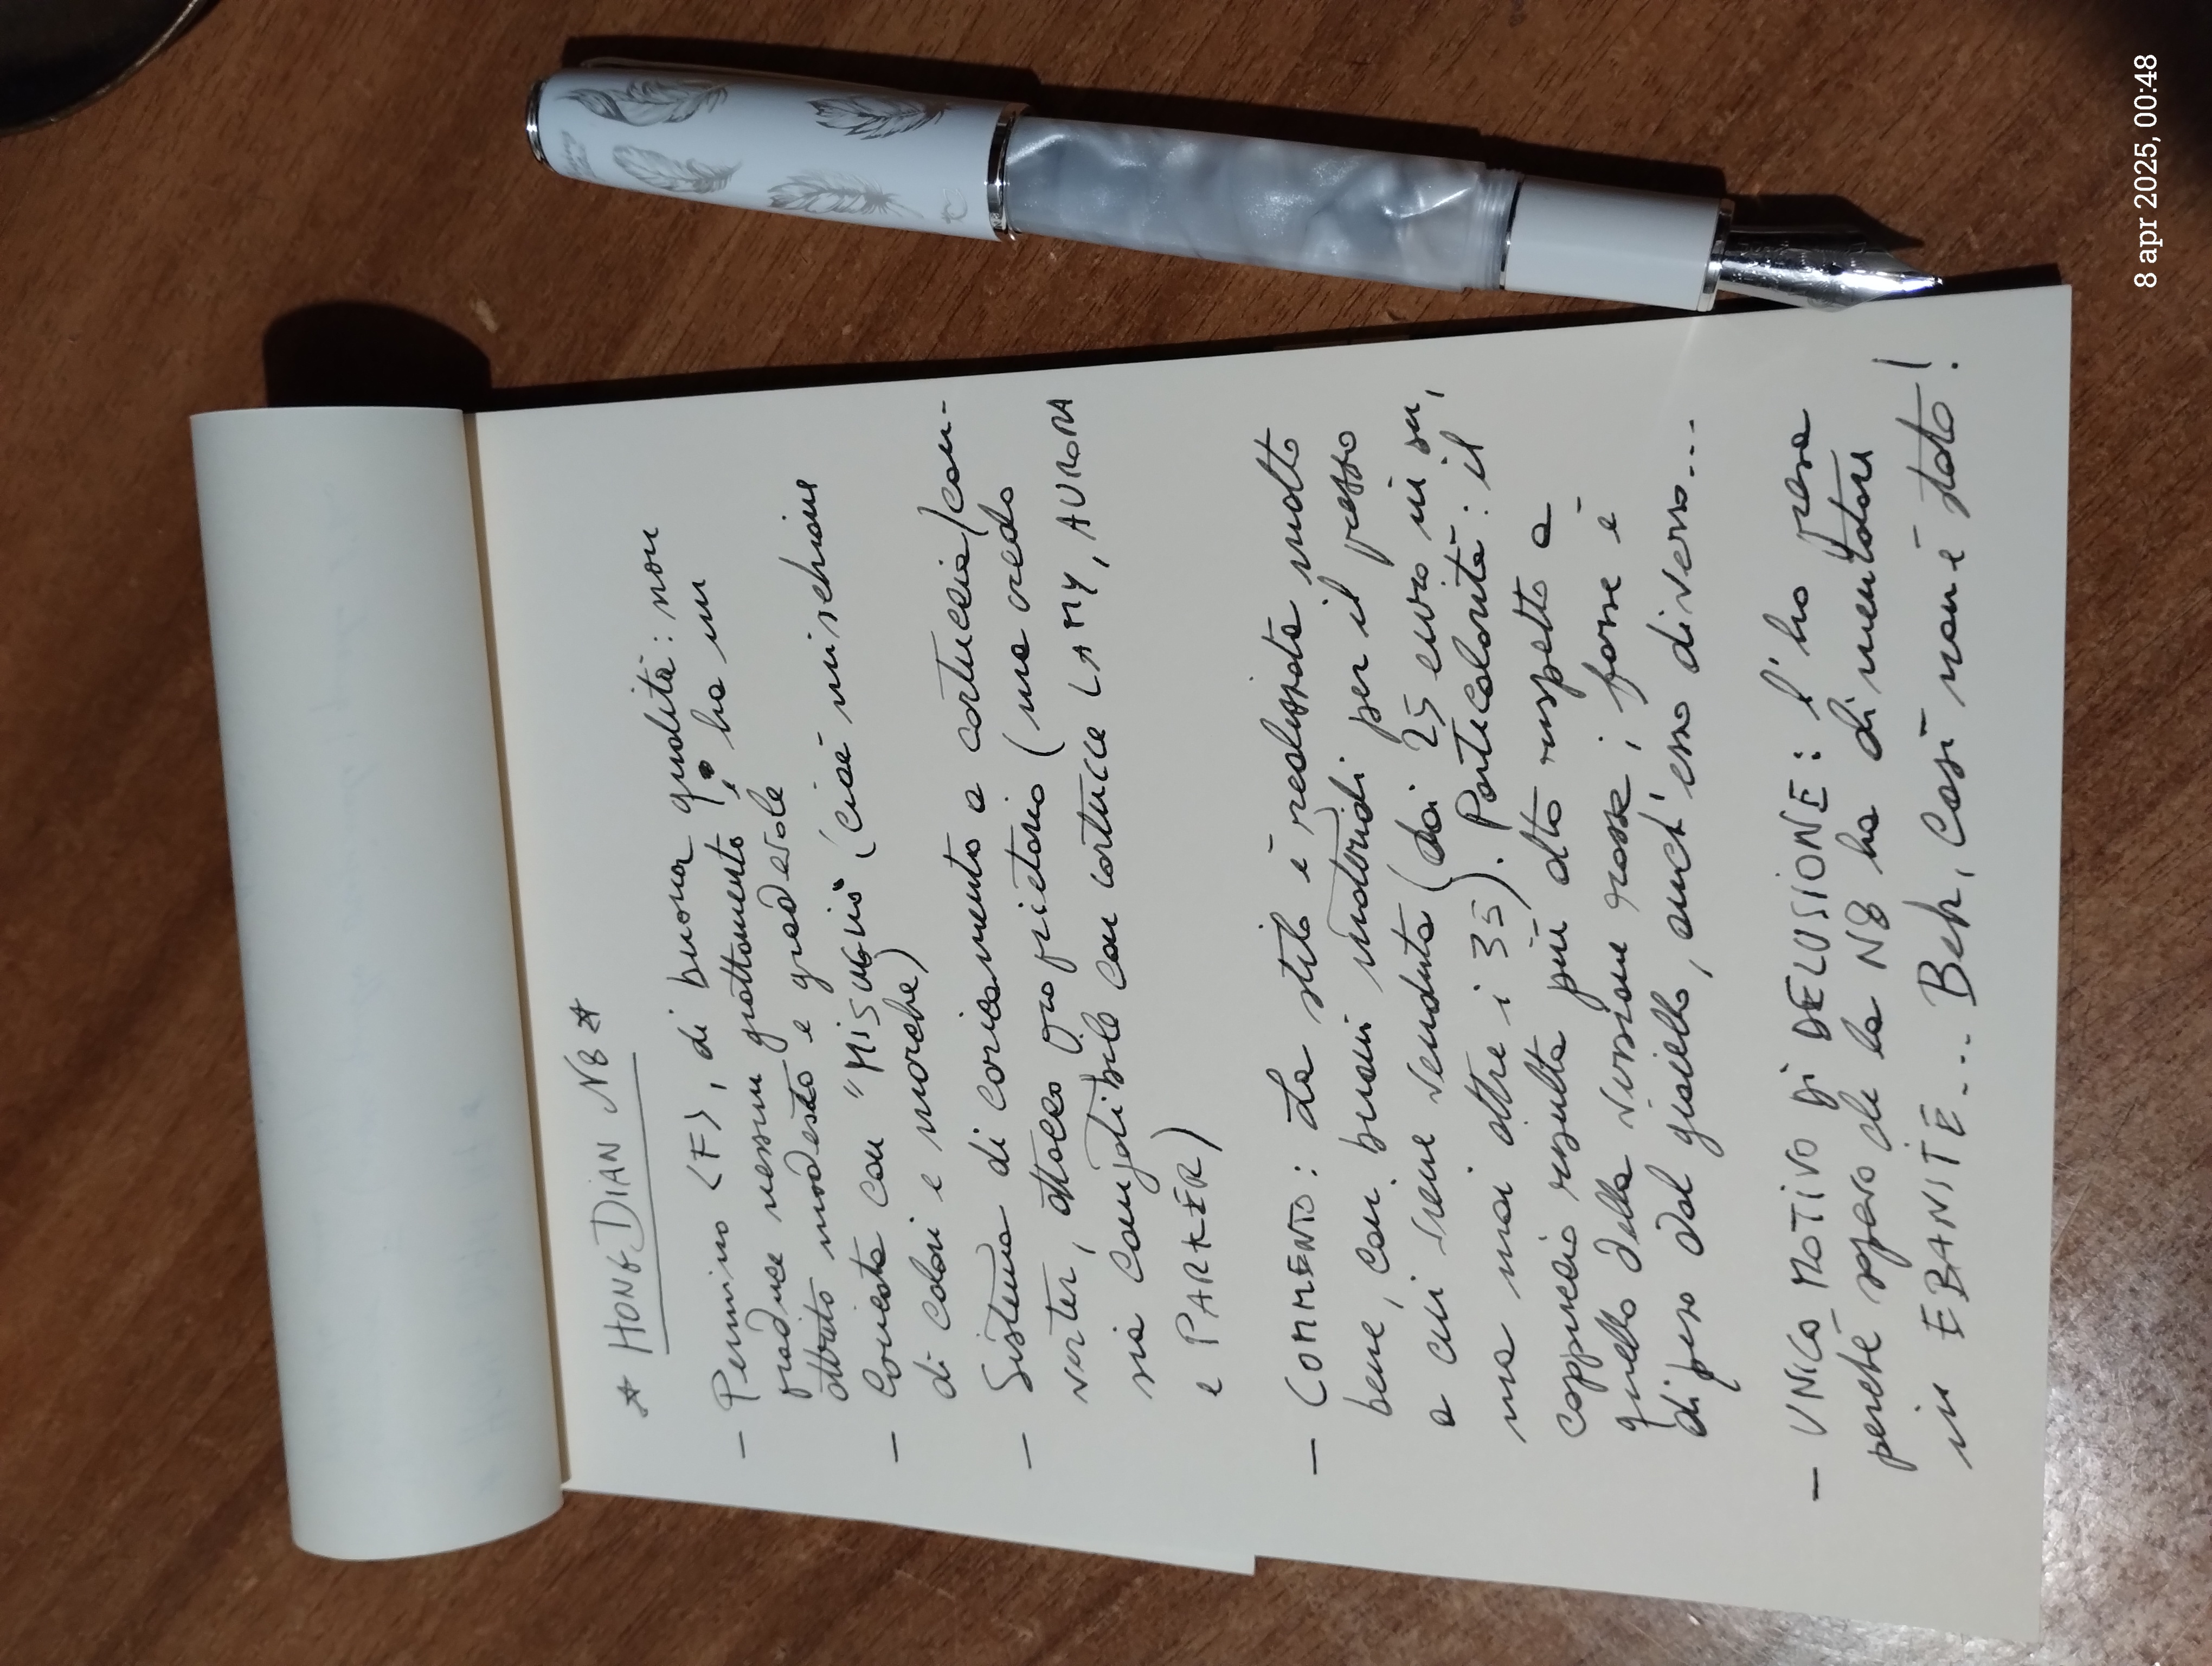 * HONGDIAN N8 *
- Pennino <F>, di buona qualità: non
produce nessun grattamento, ha un
attrito modesto e gradevole
- Caricata con "MISUGLIO" (cioè mischione
di colori e marche)
- Sistema di caricamento a cartuccia/con-
verter, attacco proprietario (ma credo
sia compatibile con cartucce LAMY, AURORA
e PARKER)
- COMMENTO: La stilo è realizzata molto
bene, con buoni materiali per il prezzo
a cui viene venduta (dai 25 euro in su,
ma mai oltre i 35). Particolarità: il
cappuccio risulta più alto rispetto a
quello della versione rossa; forse è
di peso dal gioiello, anch'esso diverso...
- UNICO MOTIVO DI DELUSIONE: l'ho presa
perché sapevo che la N8 ha di mentatore
in EBANITE... Beh, così non è stato!
8 apr 2025, 00:48